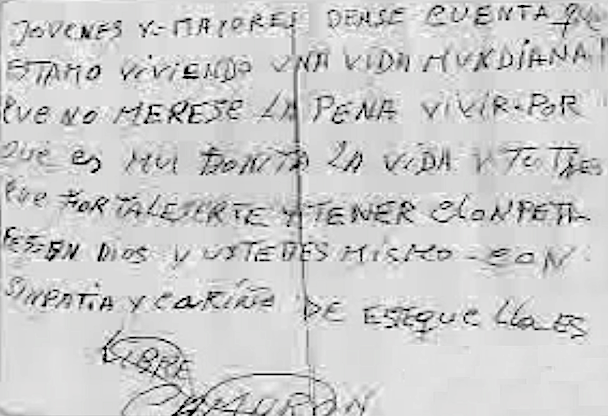 JOVENES Y-MAIORES DENSE CUENTA que
ESTAMO VIVIENDO UNA VIDA MUNDIANA!
QUE NO MERESE LA PENA VIVIR-POR
QUE es MUI BONITA LA VIDA Y TU TIES
QUE FORTALESERTE Y TENER
FE EN DIOS Y USTEDES MISMO CON
SINPATIA Y CARIÑO DE ESTE QUE
LIBRE
CAMORON